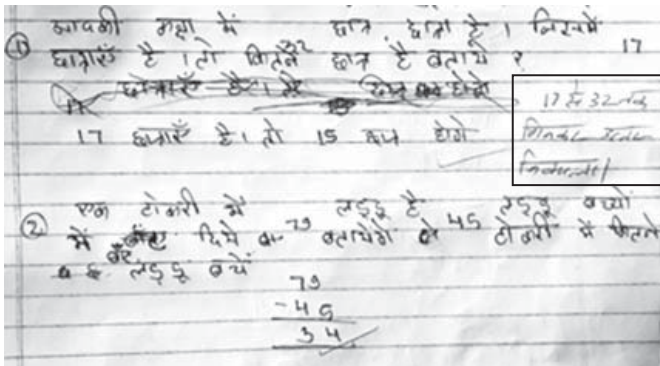 ① आपकी कक्षा में 32 छात्र छात्रा है। जिसमें 17
छात्राएँ है। तो कितने छात्र है बताये?
17 छात्राएँ है। तो 15 छात्र होंगे
17 से 32 तक
गिनकर उत्तर
निकाला।
② एक टोकरी में 79 लड्डू है 45 लड्डू बच्चों
में बाँट दिये तो बतायेगे टोकरी में कितने
लड्डू बचें
79
- 45
34